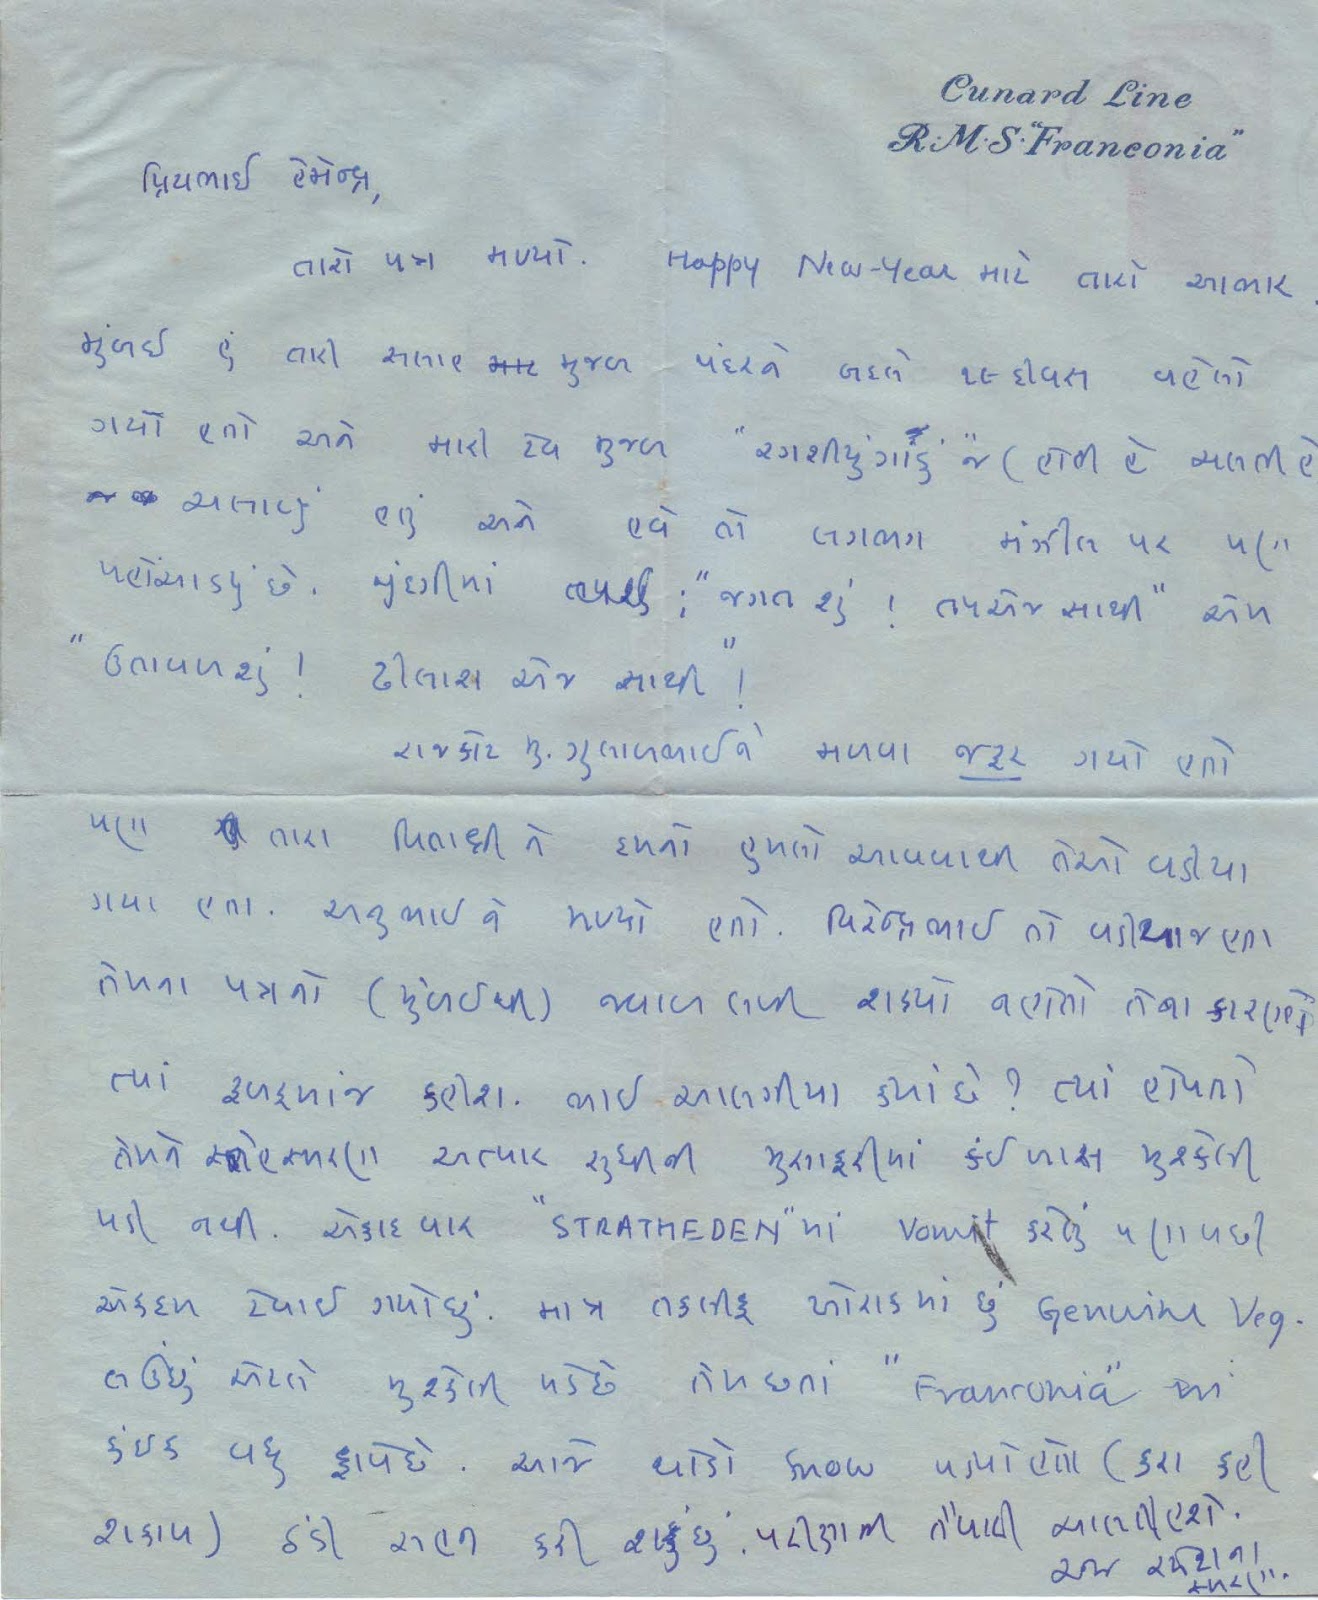 Cunard Line
R.M.S. "Franconia"
પ્રિયભાઈ હેમેન્દ્ર,
તારો પત્ર મળ્યો. Happy New-Year માટે તારો આભાર.
મુંબઈ હું તારી સલાહ મુજબ પંદરને બદલે ૧૮ દીવસ વહેલો
ગયો હતો અને મારી ટેવ મુજબ "રગશીયુંગાડું" જ (હોતી હૈ ચલતી હૈ
ચલાવ્યું હતું અને હવે તો લગભગ મંઝીલ પર પણ
પહોંચાડ્યું છે. જીંદગીમાં ; "જગત શું! તપ એજ સાથી" એમ
"ઉતાવળ શું! ઢીલાશ એજ સાથી"!
રાજકોટ મુ. ગુલાબભાઈને મળવા જરૂર ગયો હતો
પણ તારા પિતાશ્રી ને દમનો હુમલો આવવાથી તેઓ વડીયા
ગયા હતા. અનુભાઈ ને મળ્યો હતો. વિરેન્દ્રભાઈ તો વડીયાજ હતા
તેમના પત્રનો (મુંબઈથી) જવાબ લખી શક્યો નહોતો તેના કારણો
ત્યાં રૂબરૂમાંજ કહીશ. ભાઈ આલગીયા ક્યાં છે? ત્યાં હોયતો
તેમને સ્નેહસ્મરણ અત્યાર સુધીની મુસાફરીમાં કંઈ ખાસ મુશ્કેલી
પડી નથી. એકાદ વાર "STRATHEDEN" માં Vomit કરેલું પણ પછી
એકદમ ટેવાઈ ગયોછું. માત્ર તકલીફ ખોરાકમાં છું Genuine Veg.
લઉંછું એટલે મુશ્કેલી પડેછે તેમ છતાં "Franconia" માં
કંઈક વધુ ફાવેછે. આજે થોડો snow પડ્યોહતો (કરા કહી
શકાય) ઠંડી સહન કરી શકુંછું. પરીક્ષાની તૈયારી ચાલતીહશે.
એજ રમેશના
સ્મરણ.